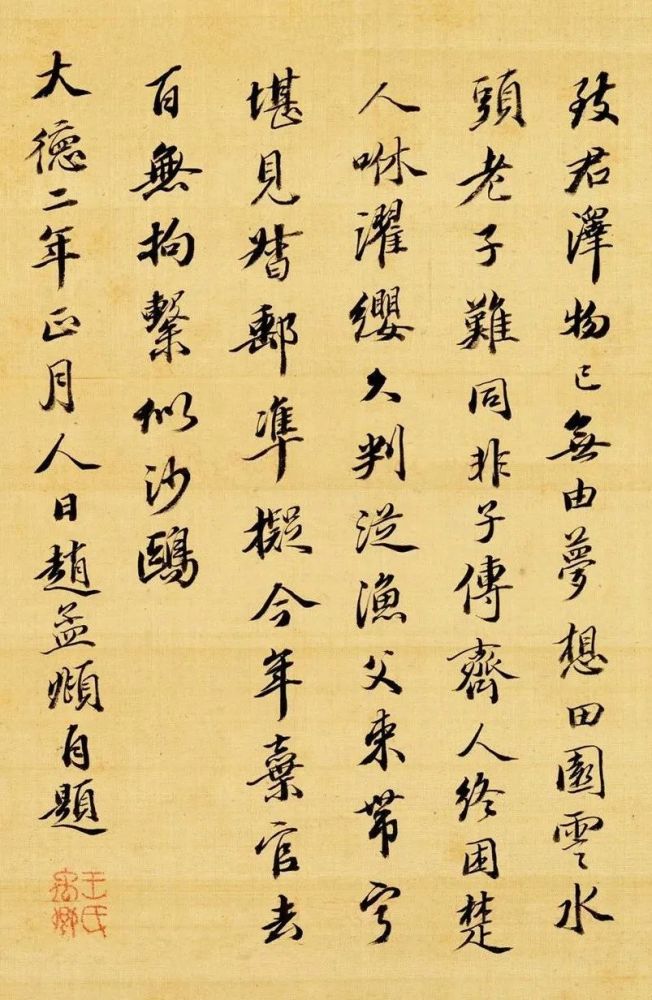 致君澤物已無由夢想田園雲水
頭老子難同非子傳齊人終困楚
人咻濯纓久判從漁父束帶寧
堪見督郵準擬今年棄官去
百無拘繫似沙鷗
大德二年正月人日趙孟頫自題
王氏禹卿